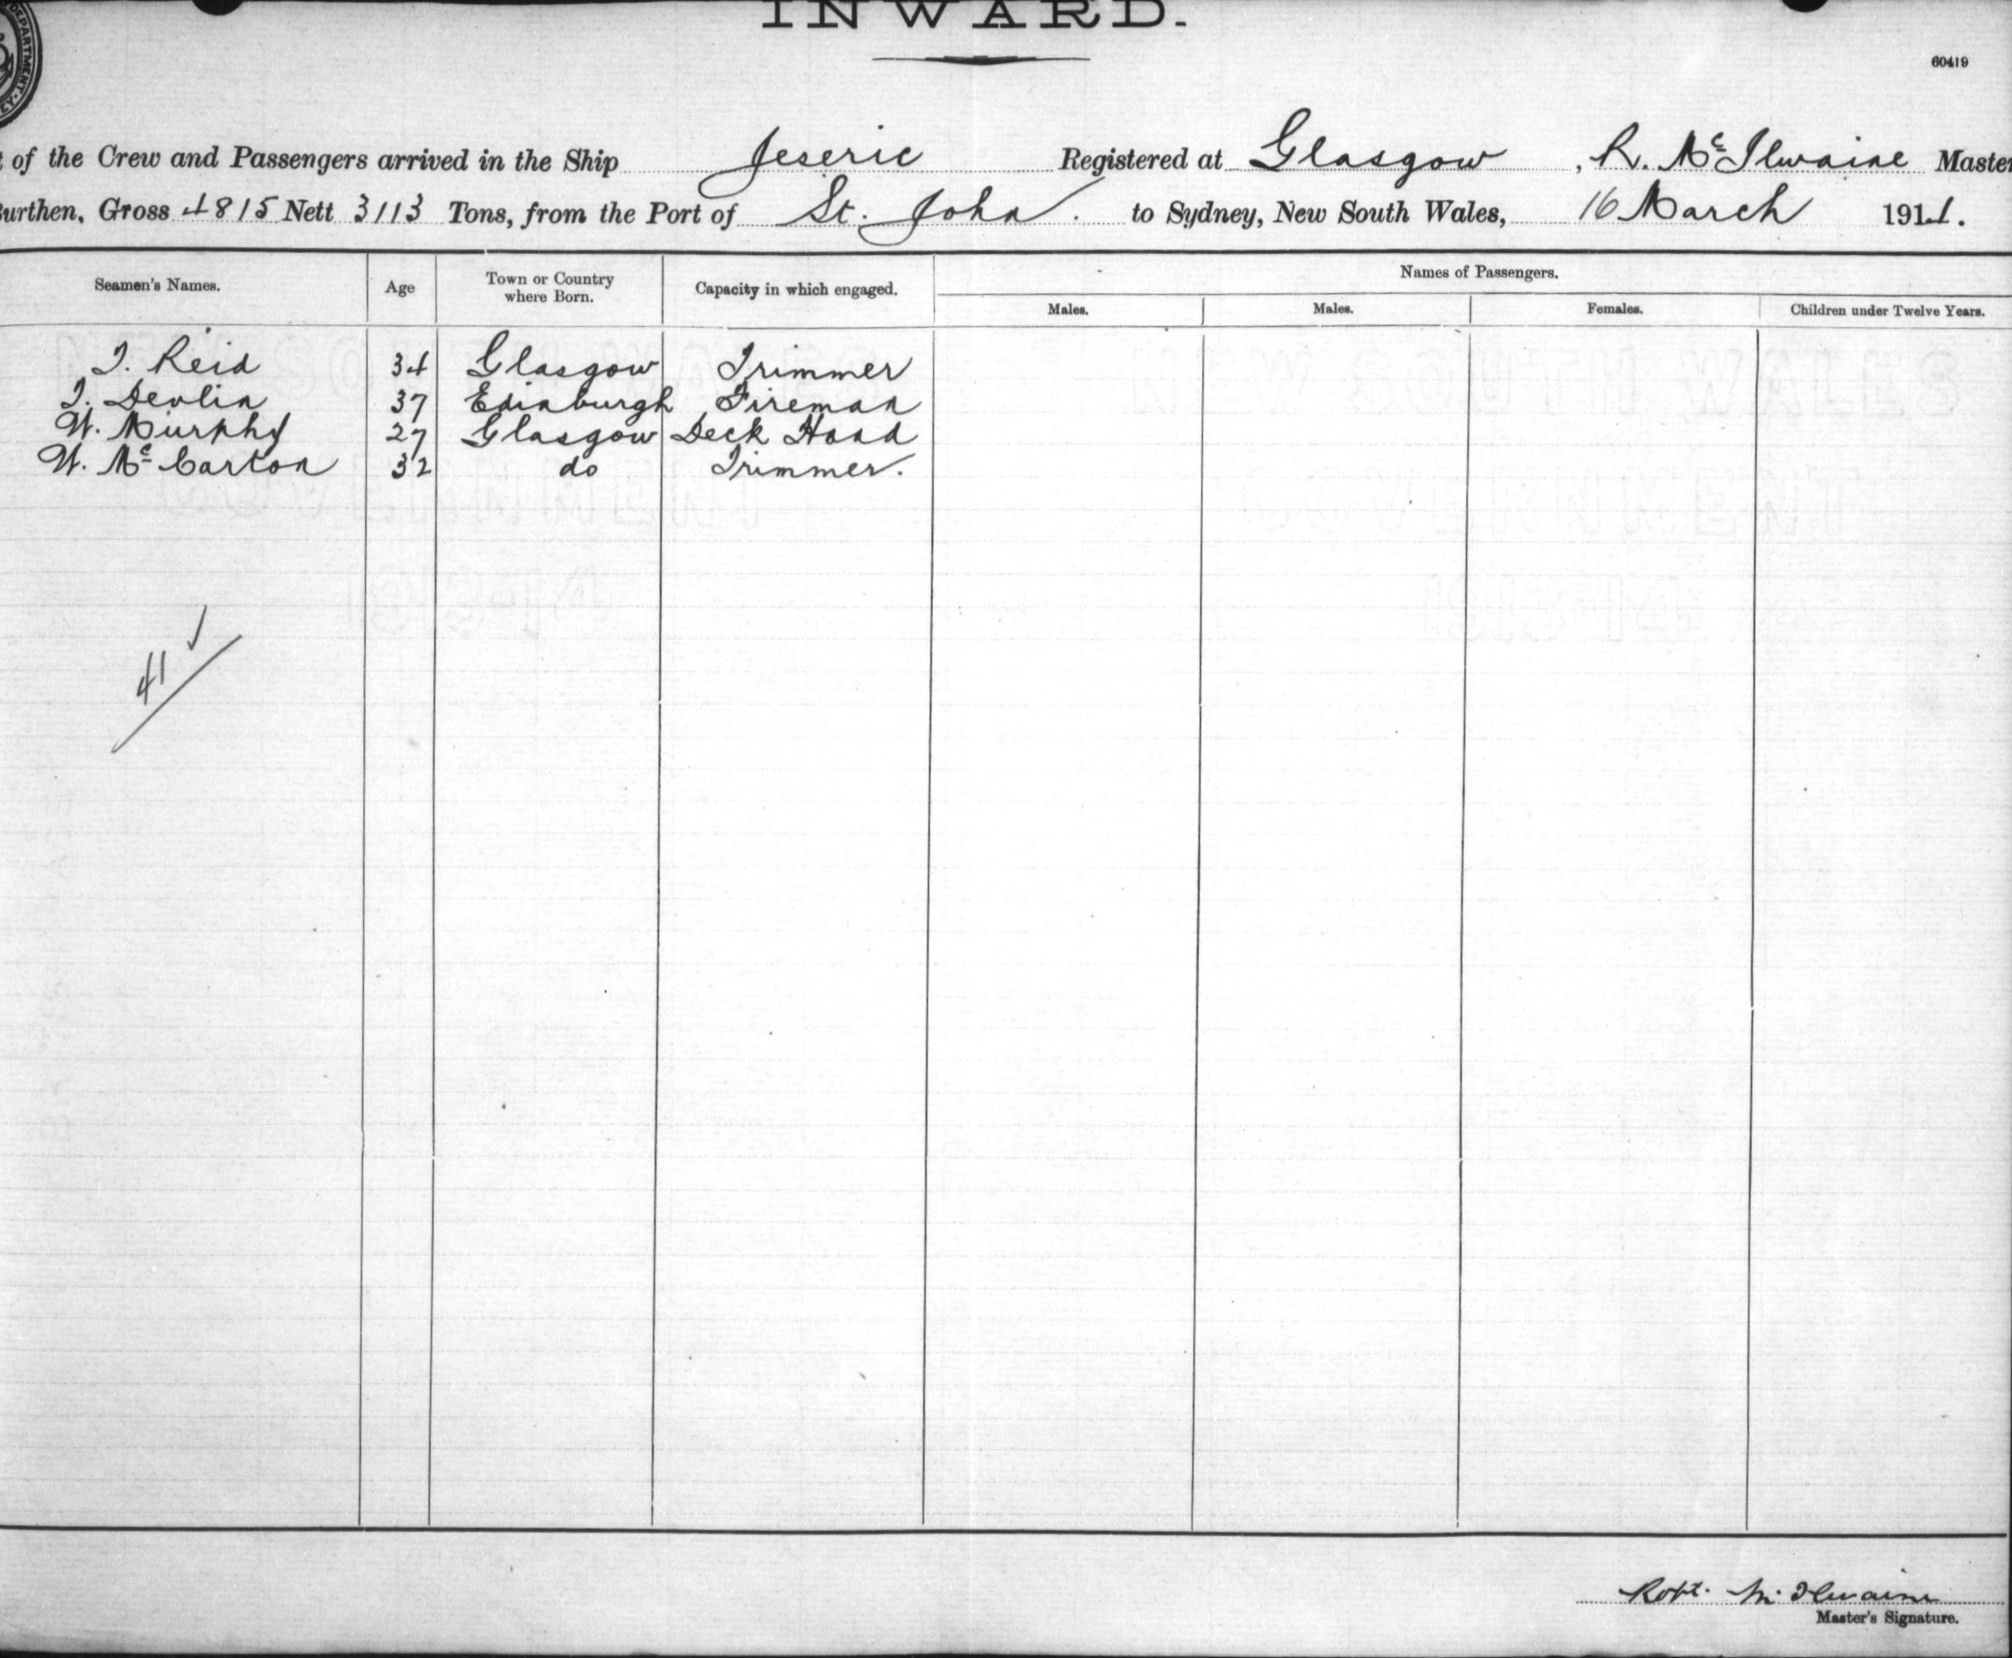 INWARD.
60419
of the Crew and Passengers arrived in the Ship Jeseric Registered at Glasgow, R. McIlwaine Master
Burthen, Gross 4815 Nett 3113 Tons, from the Port of St. John. to Sydney, New South Wales, 16 March 1911.
Seamen's Names. Age Town or Country where Born. Capacity in which engaged. Names of Passengers.
Males. Males. Females. Children under Twelve Years.
T. Reid 34 Glasgow Trimmer
T. Devlin 37 Edinburgh Fireman
W. Murphy 27 Glasgow Deck Hand
W. McCarton 32 do Trimmer.
41
Robt. McIlwaine
Master's Signature.